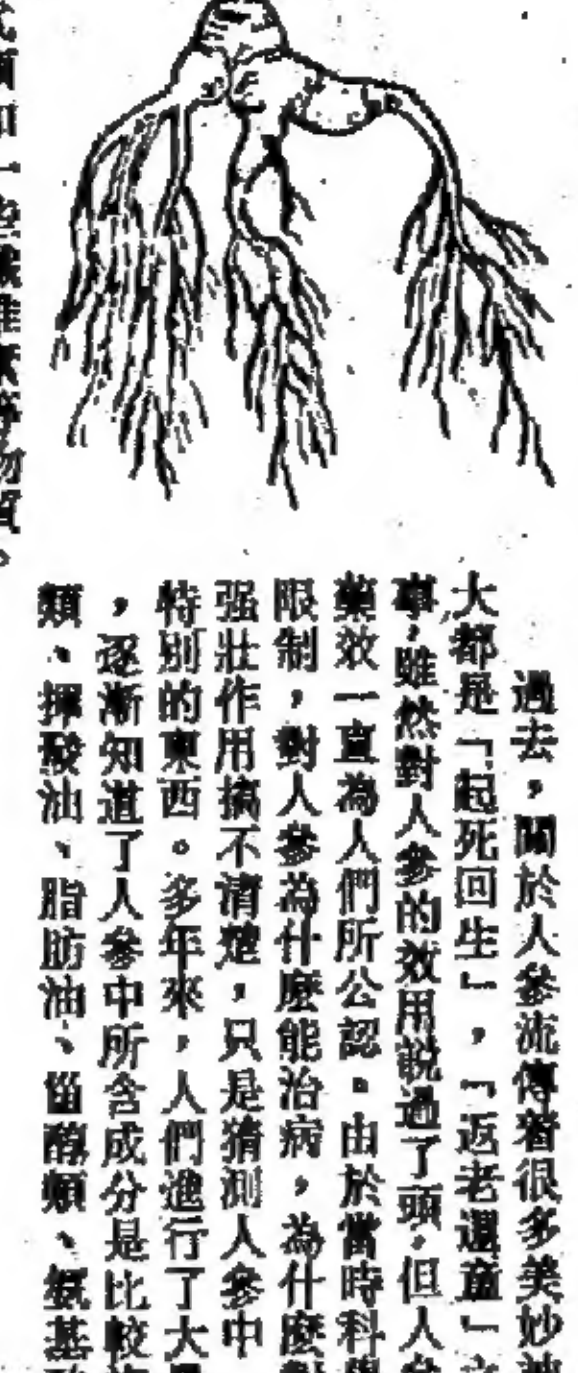 過去，關於人參流傳着很多美妙神
大都是「起死回生」，「返老還童」之
事，雖然對人參的效用說過了頭，但人參
藥效一直為人們所公認。由於當時科學
限制，對人參為什麼能治病，為什麼對
强壯作用搞不清楚，只是猜測人參中
特別的東西。多年來，人們進行了大量
，逐漸知道了人參中所含成分是比較
類、揮酸油、脂肪油、甾醇類、氨基酸
和一些纖維素等物質。